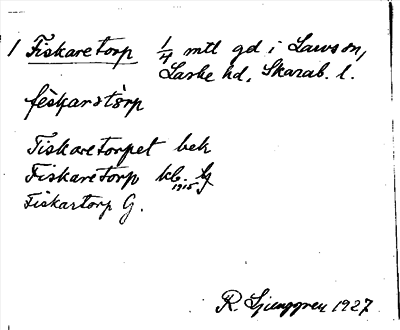 1 Fiskaretorp 1/4 mtl gd i Lavs sn,
Laske hd, Skarab. l.
fèskarstòrp
Fiskaretorpet bek
Fiskaretorp kb. 1915
Fiskartorp G.
R. Ljunggren 1927